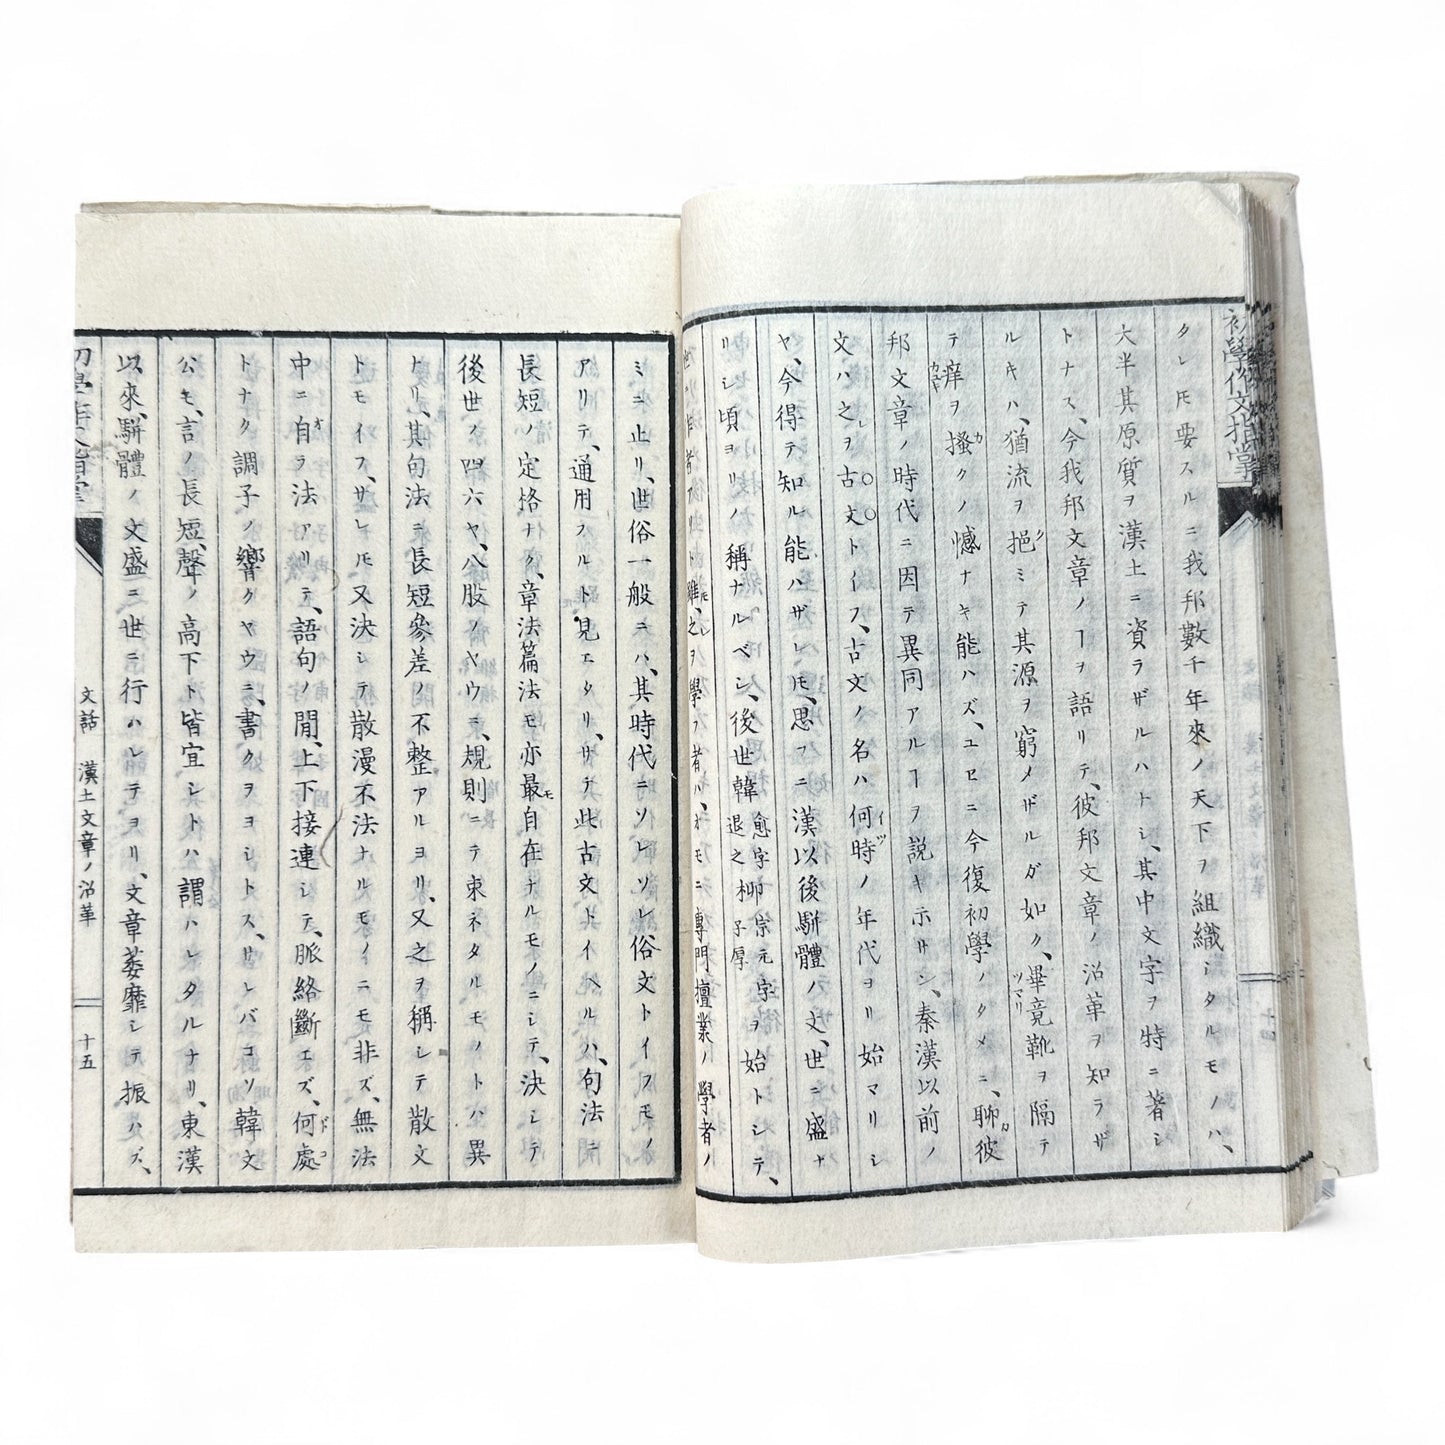 初學作文指掌
タレ𪜈要スルニ我邦數千年來ノ天下ヲ組織シタルモノハ、
大半其原質ヲ漢土ニ資ラザルハトシ、其中文字ヲ特ニ著シ
トナス、今我邦文章ノヿヲ語リテ、彼邦文章ノ沿革ヲ知ラザ
ルキハ、猶流ヲ挹ミテ其源ヲ窮メザルガ如ク、畢竟靴ヲ隔テ
テ痒ヲ搔クノ憾ナキ能ハズ、ユヱニ今復初學ノタメニ、聊彼
邦文章ノ時代ニ因テ異同アルヿヲ說キ示サン、秦漢以前ノ
文ハ之ヲ古文トイフ、古文ノ名ハ何時ノ年代ヨリ始マリシ
ヤ、今得テ知ル能ハザレ𪜈、思フニ漢以後駢體ノ文、世ニ盛ナ
リシ頃ヨリノ稱ナルベシ、後世韓愈字退之柳宗元字子厚ヲ始トシテ、
雖、之ヲ學フ者ハ、オモニ專門擅業ノ學者ノ
ミニ止リ、世俗一般ニハ、其時代ニソレソレ俗文トイフモノ
アリテ、通用フルト見エタリ、サテ此古文トイヘルハ、句法
長短ノ定格ナク、章法篇法モ亦最自在ナルモノニシテ、決シテ
後世ノ四六ヤ、八股ノヤウニ、規則ニテ束ネタルモノトハ異
ナリ、其句法ニ長短參差ノ不整アルヨリ、又之ヲ稱シテ散文
トモイフ、サレ𪜈又決シテ散漫不法ナルモノニモ非ズ、無法
中ニ自ラ法アリテ、語句ノ間、上下接連シテ、脈絡斷エズ、何處
トナク調子ノ響クヤウニ、書クヲヨシトス、サレバコソ韓文
公モ、言ノ長短、聲ノ高下ト皆宜シトハ謂ハレタルナリ、東漢
以來、駢體ノ文盛ニ世ニ行ハレテヨリ、文章萎靡シテ振ハズ、
文話 漢土文章ノ沿革 十五